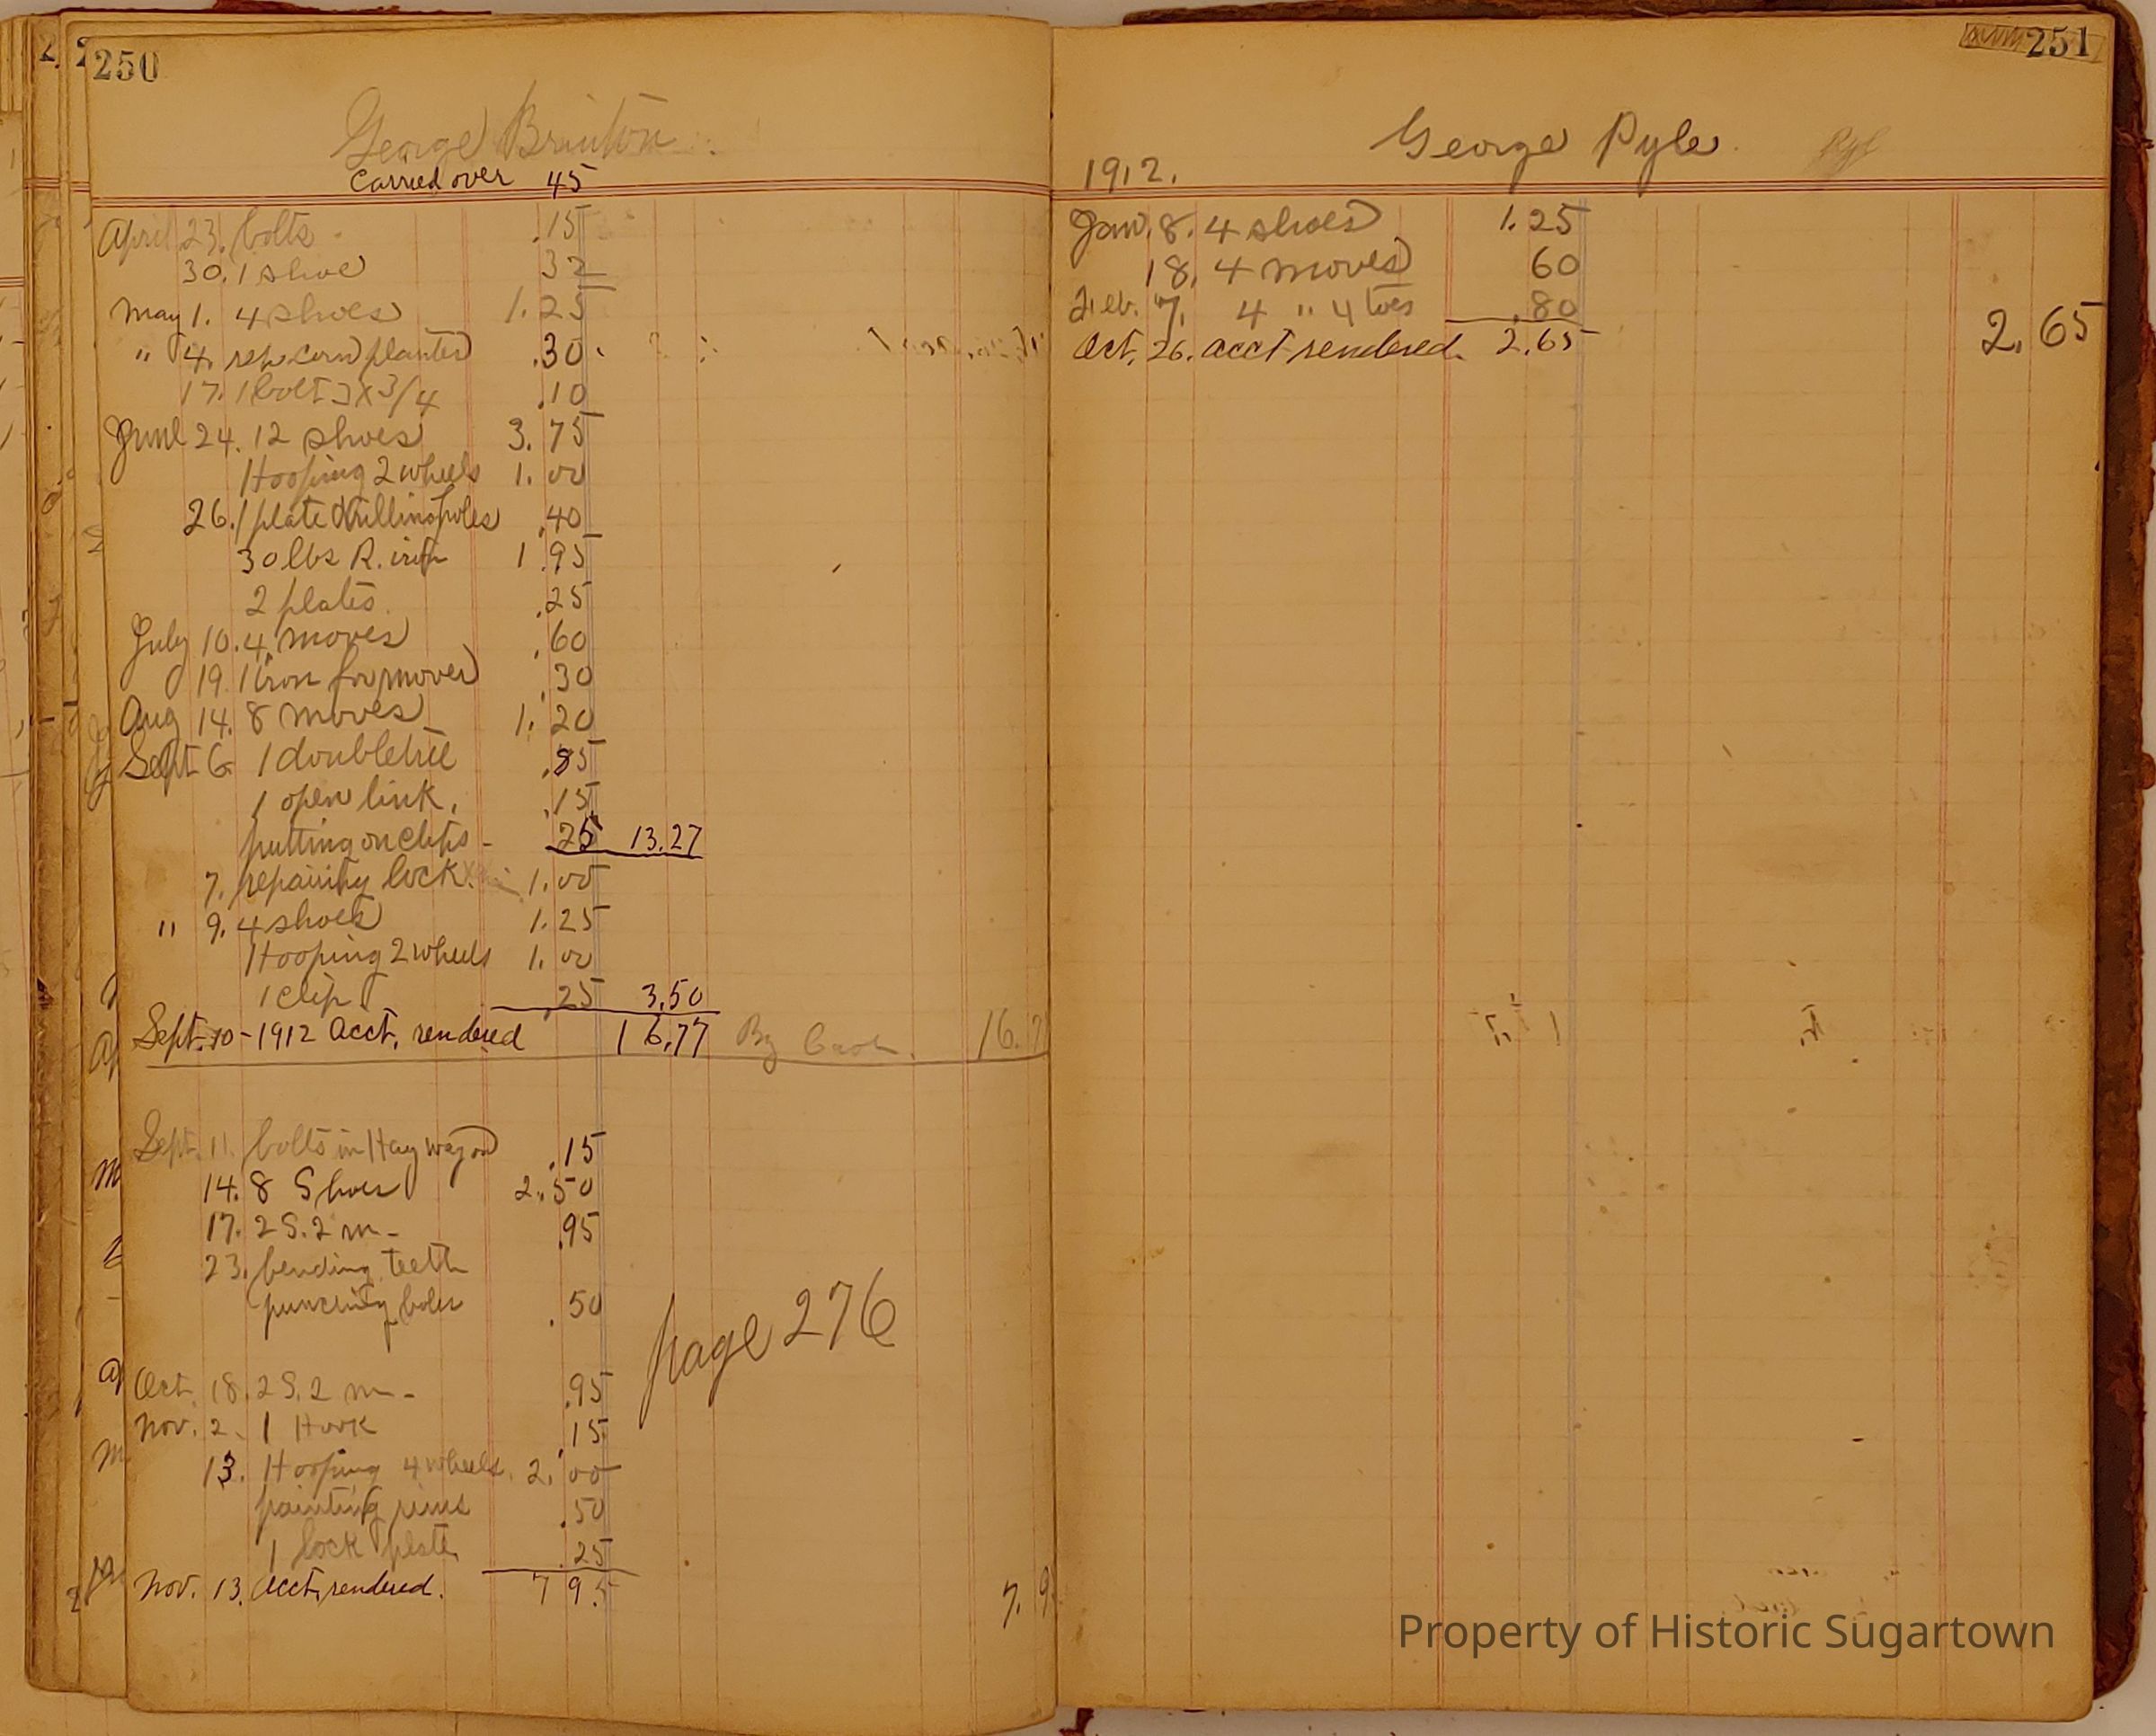 250
George Brinton
Carried over 45
April 23. bolts .15
30. 1 shoe 32
May 1. 4 shoes 1.25
" 4. rep. corn planter .30
17. 1 bolt 3x3/4 .10
June 24. 12 shoes 3.75
Hooping 2 wheels 1.00
26. 1 plate drilling holes .40
30 lbs R. iron 1.95
2 plates .25
July 10. 4 moves .60
19. 1 iron for mower .30
Aug 14. 8 moves 1.20
Sept 6 1 doubletree .85
1 open link .15
putting on clips - 25 13.27
7. repairing lock 1.00
" 9. 4 shoes 1.25
Hooping 2 wheels 1.00
1 clip .25 3.50
Sept. 10 - 1912 Acct. rendered 16.77 By Cash. 16.7
Sept. 11. bolts in Hay wagon .15
14. 8 Shoes 2.50
17. 2 S. 2 m - .95
23. bending teeth
punching holes .50
page 276
Oct. 18. 2 S. 2 m - .95
Nov. 2. 1 Hook .15
13. Hooping 4 wheels. 2.00
painting rims .50
1 lock plate .25
Nov. 13. Acct. rendered. 7 95 7.9
251
George Pyle. Pyl
1912.
Jan. 8. 4 shoes 1.25
18. 4 moves 60
Feb. 7. 4 " 4 toes .80
Oct. 26. acct rendered. 2.65 2.65
Property of Historic Sugartown